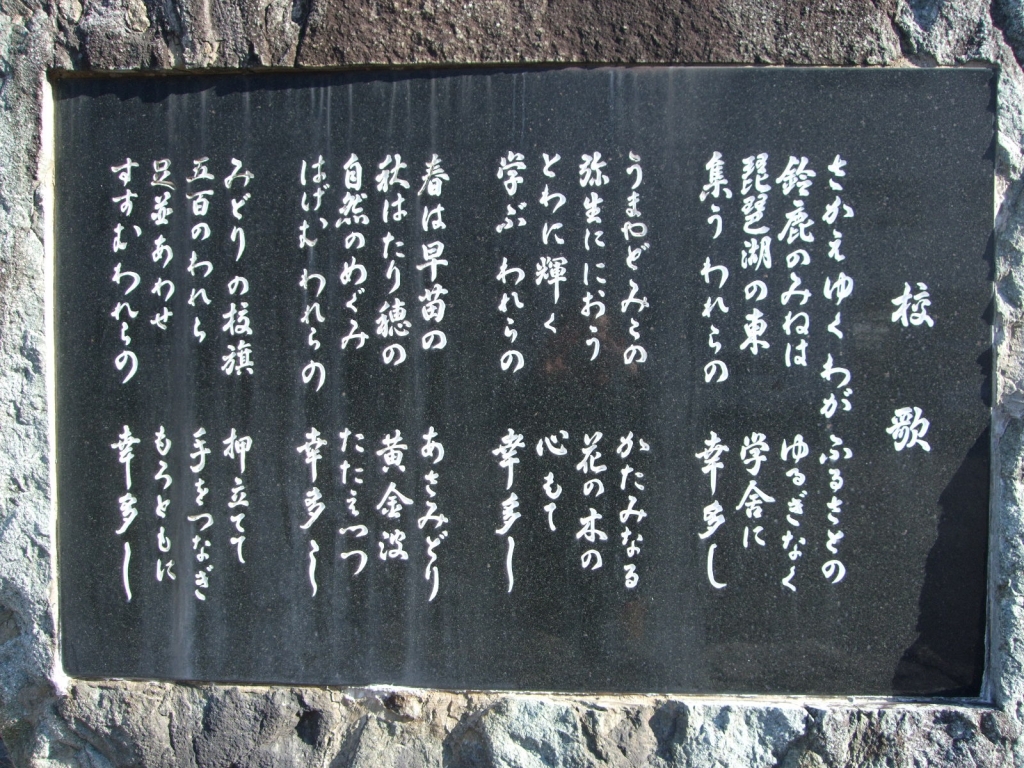 校歌
さかえゆく わが ふるさとの
鈴鹿のみねは ゆるぎなく
琵琶湖の東 学舎に
集う われらの 幸多し
うまやどみこの かたみなる
弥生ににおう 花の木の
とわに輝く 心もて
学ぶ われらの 幸多し
春は早苗の あさみどり
秋はたり穂の 黄金波
自然のめぐみ たたえつつ
はげむ われらの 幸多し
みどりの校旗 押立てて
五百のわれら 手をつなぎ
足並あわせ もろともに
すすむわれらの 幸多し